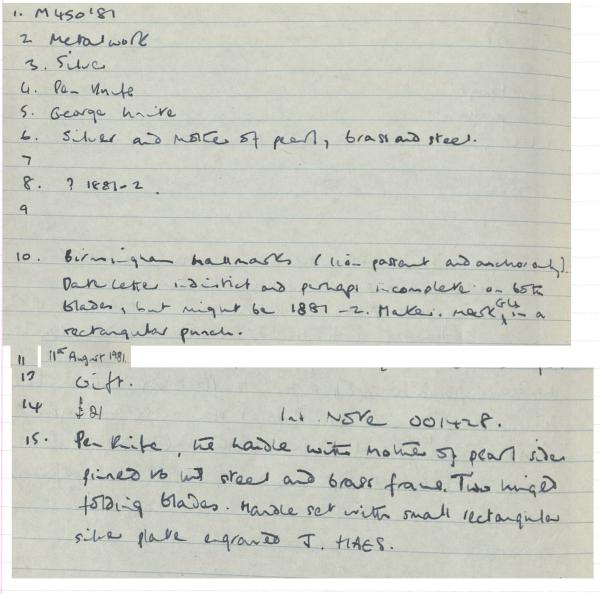 1. M450'81
2 Metalwork
3. Silver
4. Pen Knife
5. George Unite
6. Silver and Mother of pearl, brass and steel.
7
8. ? 1881-2.
9
10. Birmingham hallmarks (lion passant and anchor only).
Date letter indistinct and perhaps incomplete on both
blades, but might be 1881-2. Maker's mark, GU in a
rectangular punch.
11 11th August 1981.
13 Gift.
14 £21 Ins. Note 001428.
15. Pen Knife, the handle with Mother of pearl sides
pinned to steel and brass frame. Two hinged
folding blades. Handle set with small rectangular
silver plate engraved J. HAES.